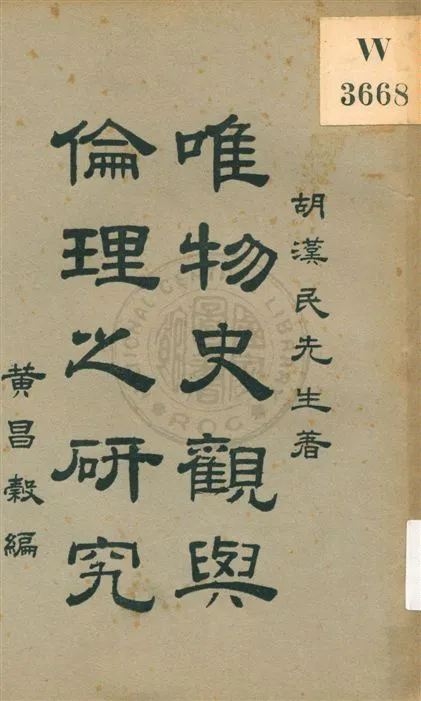 W
3668
胡漢民先生著
唯物史觀與
倫理之研究
黃昌榖編